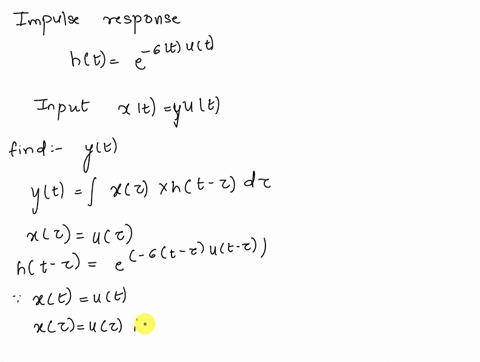 Impulse response
h(t) = e^{-6(t) u(t)}
Input x(t) = yu(t)
find:- y(t)
y(t) = ∫ x(τ) × h(t-τ) dτ
x(τ) = u(τ)
h(t-τ) = e^{(-6(t-τ) u(t-τ))}
∵ x(t) = u(t)
x(τ) = u(τ)